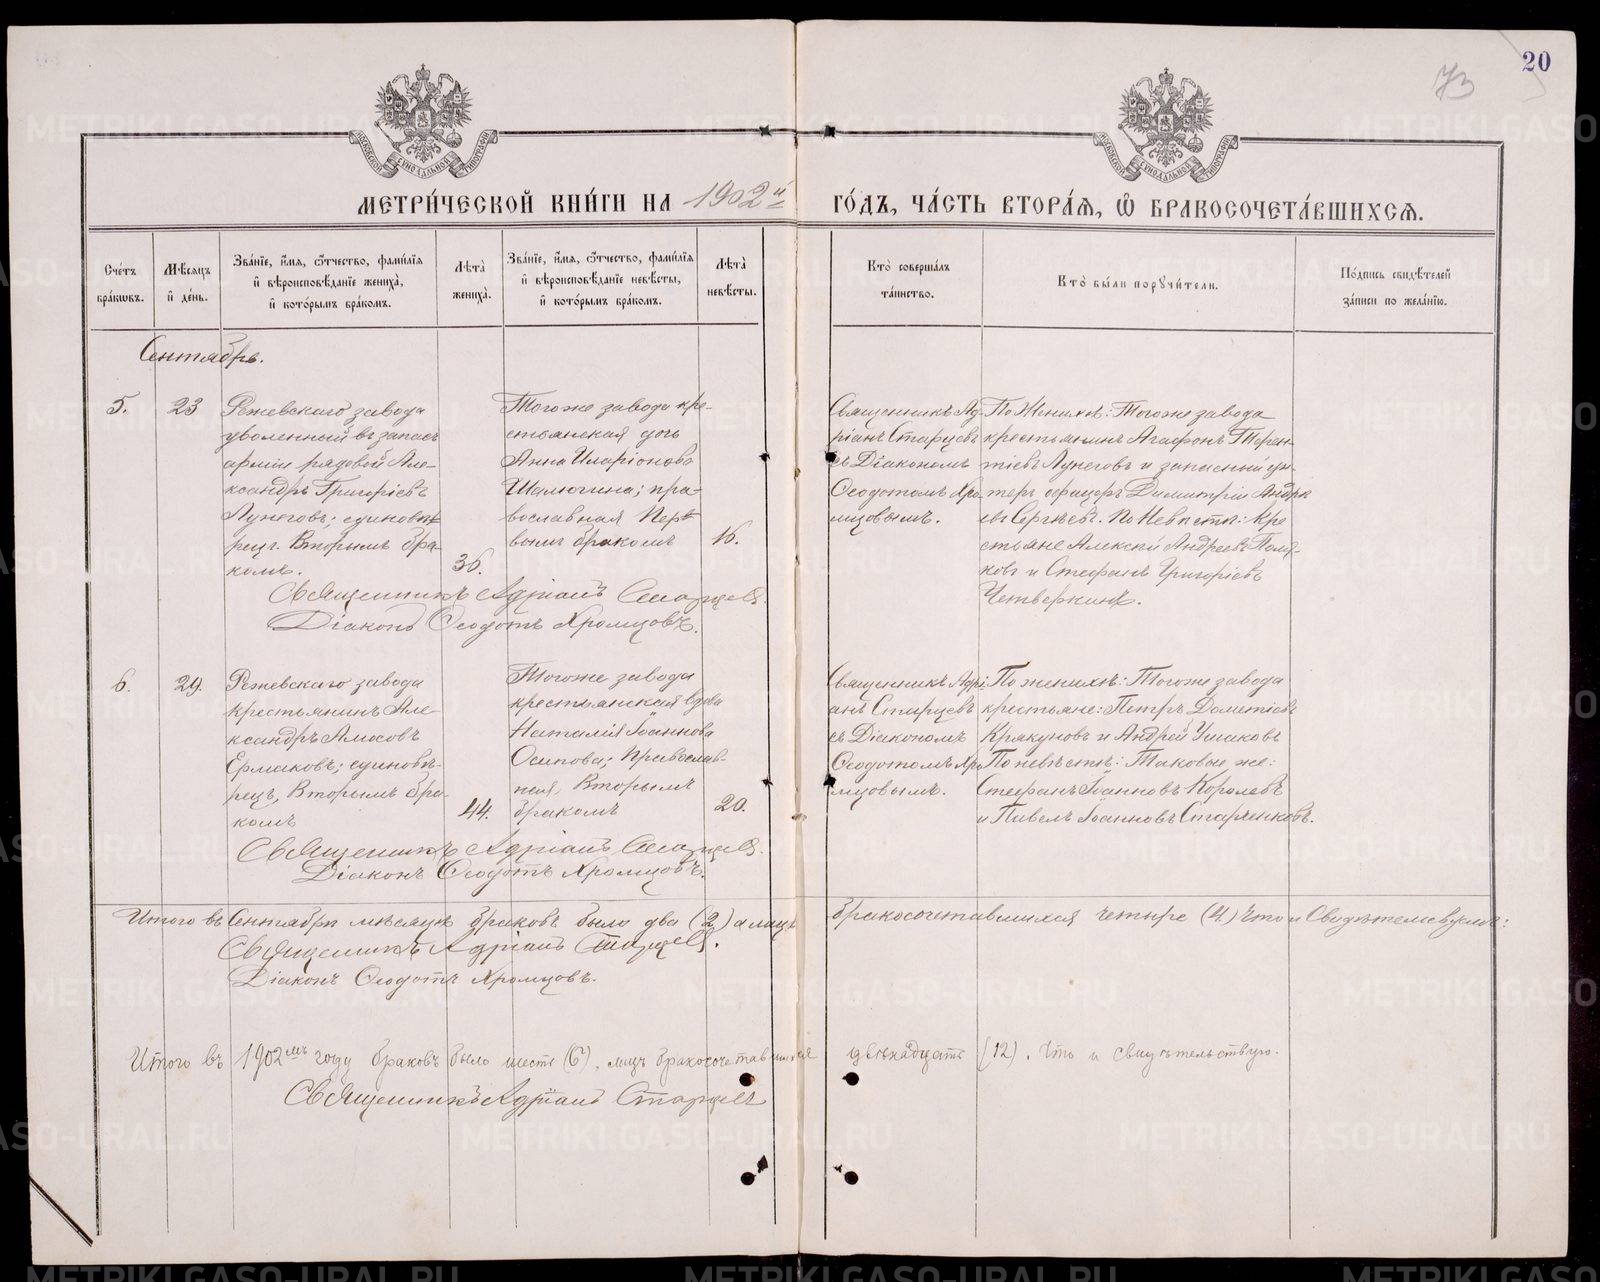 20
73
МОСКОВСКОЙ СѴНОДАЛЬНОЙ ТИПОГРАФІИ
МОСКОВСКОЙ СѴНОДАЛЬНОЙ ТИПОГРАФІИ
МЕТРИ́ЧЕСКОЙ КНИ́ГИ НА 1902й ГО́ДЪ, ЧА́СТЬ ВТОРА́Я, Ѽ БРАКОСОЧЕТА́ВШИХСЯ.
Сче́тъ бра́кѡвъ.
Мѣ́сяцъ и҆ де́нь.
Зва́нїе, и҆́мя, ѻ҆́тчество, фами́лїя и҆ вѣроисповѣ́данїе жениха̀, и҆ кото́рымъ бра́комъ.
Лѣта̀ жениха̀.
Зва́нїе, и҆́мя, ѻ҆́тчество, фами́лїя и҆ вѣроисповѣ́данїе невѣ́сты, и҆ кото́рымъ бра́комъ.
Лѣта̀ невѣ́сты.
Кто̀ соверша́лъ та́инство.
Кто̀ бы́ли порꙋчи́тели.
По́дпись свидѣ́телей за́писи по жела́нїю.
Сентябрь.
5.
23
Режевскаго завода
уволенный въ запасъ
арміи рядовой Але-
ксандръ Григоріевъ
Лунеговъ; единовѣ-
рецъ. Вторымъ бра-
комъ.
36.
Тогоже завода кре-
стьянская дочь
Анна Иларіонова
Шалюгина; пра-
вославная Пер-
вымъ бракомъ
16.
Священникъ Ад-
ріанъ Старцевъ
съ Діакономъ
Ѳеодотомъ Хро-
мцовымъ.
По Женихѣ: Тогоже завода
крестьянинъ Агафонъ Терен-
тіевъ Лунеговъ и запасный ун-
теръ офицеръ Димитрій Андре
евъ Сергѣевъ. По Невѣстѣ: Кре
стьяне Алексѣй Андреевъ Поля-
ковъ и Стефанъ Григоріевъ
Четверкинъ.
Священникъ Адріанъ Старцевъ.
Діаконъ Ѳеодотъ Хромцовъ.
6.
29.
Режевскаго завода
крестьянинъ Але-
ксандръ Амосовъ
Ермаковъ; единовѣ-
рецъ, Вторымъ бра-
комъ
44.
Тогоже завода
крестьянская вдова
Наталія Іоаннова
Осипова; Православ-
ная, Вторымъ
бракомъ
20.
Священникъ Адрі-
анъ Старцевъ
съ Діакономъ
Ѳеодотомъ Хро
мцовымъ.
По женихѣ: Тогоже завода
крестьяне: Петръ Дометіевъ
Кракуновъ и Андрей Ушаковъ
По невѣстѣ: Таковые же:
Стефанъ Іоанновъ Королевъ
и Павелъ Іоанновъ Старченковъ.
Священникъ Адріанъ Старцевъ.
Діаконъ Ѳеодотъ Хромцовъ.
Итого въ Сентябрѣ мѣсяцѣ браковъ было два (2) а лицъ бракосочетавшихся четыре (4) что и Свидѣтельствуемъ:
Священникъ Адріанъ Старцевъ.
Діаконъ Ѳеодотъ Хромцовъ.
Итого въ 1902мъ году браковъ было шесть (6), лицъ бракосочетавшихся двѣнадцать (12). Что и свидѣтельствую.
Священникъ Адріанъ Старцевъ
METRIKI.GASO-URAL.RU